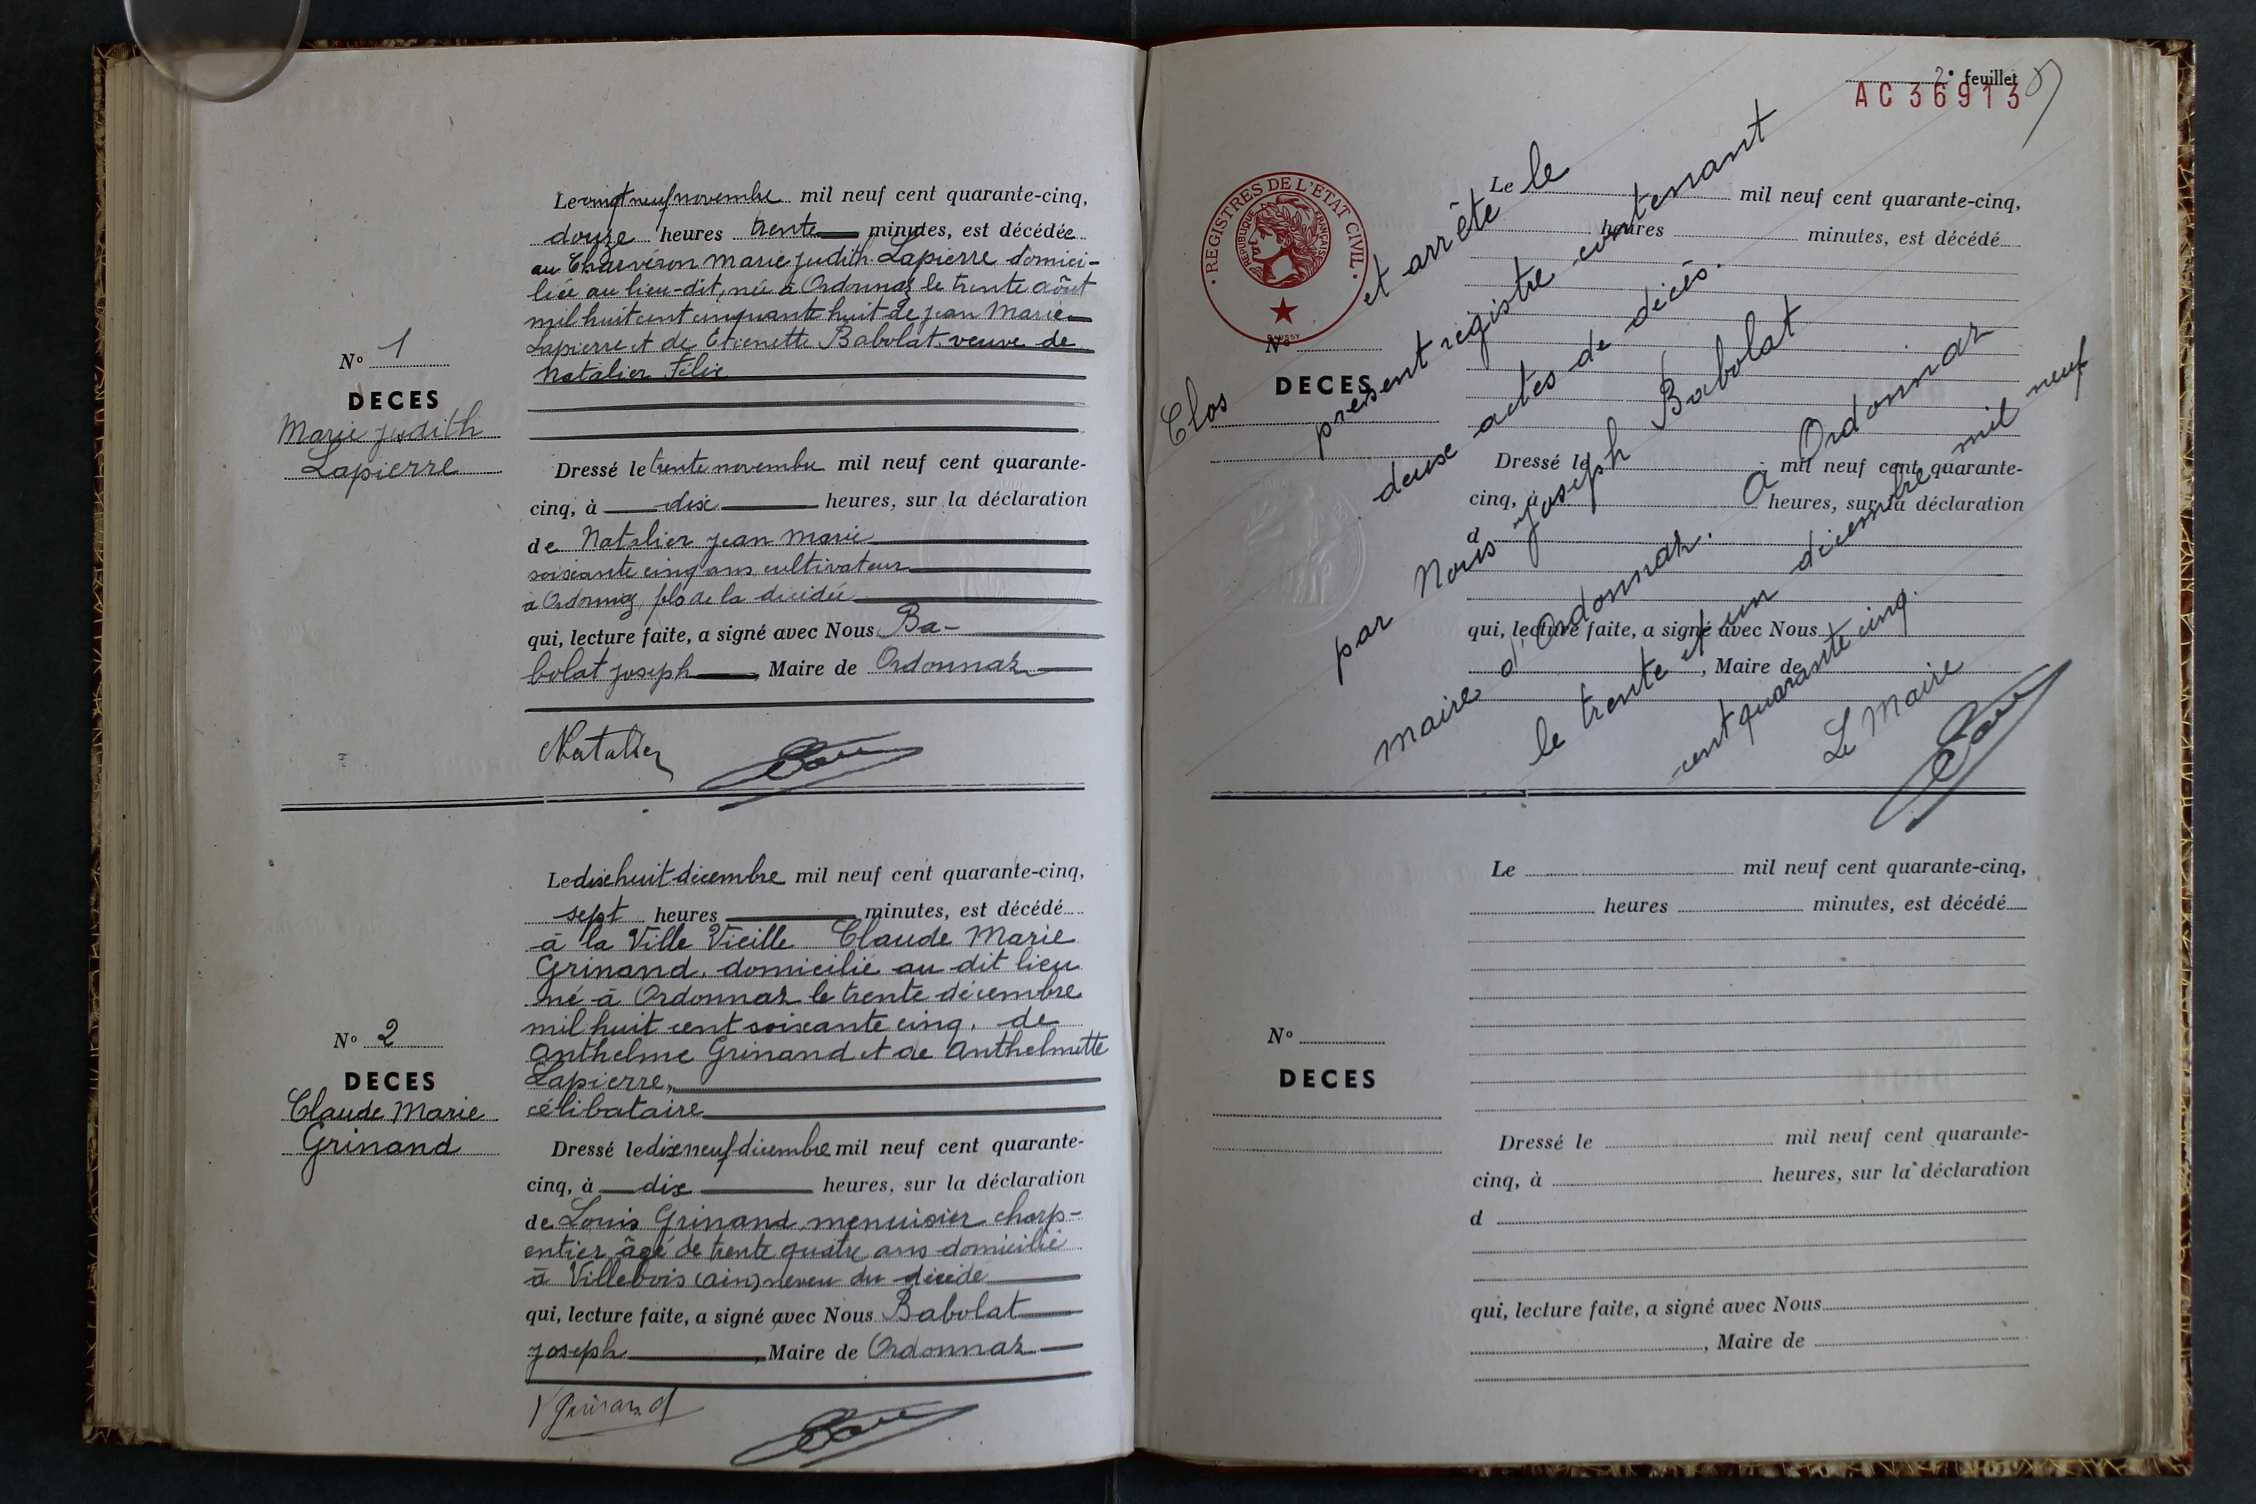 Le vingt neuf novembre mil neuf cent quarante-cinq,
douze heures trente minutes, est décédée
au Charvéron Marie Judith Lapierre domici-
liée au lieu-dit, née à Ordonnaz le trente août
mil huit cent cinquante huit de Jean Marie
Lapierre et de Etienette Babolat. veuve de
Natalier Félix
N° 1
DECES
Marie Judith
Lapierre
Dressé le trente novembre mil neuf cent quarante-
cinq, à dix heures, sur la déclaration
de Natalier Jean Marie
soixante cinq ans cultivateur
à Ordonnaz, fils de la décédée
qui, lecture faite, a signé avec Nous Ba-
bolat Joseph, Maire de Ordonnaz
Natalier
Le dix huit décembre mil neuf cent quarante-cinq,
sept heures minutes, est décédé
à la Ville Vieille Claude Marie
Grinand. domicilié au dit lieu
né à Ordonnaz le trente décembre
mil huit cent soixante cinq. de
Anthelme Grinand et de Anthelmette
Lapierre,
célibataire
N° 2
DECES
Claude Marie
Grinand
Dressé le dix neuf décembre mil neuf cent quarante-
cinq, à dix heures, sur la déclaration
de Louis Grinand menuisier charp-
entier âgé de trente quatre ans domicilié
à Villebois (Ain) neveu du décédé
qui, lecture faite, a signé avec Nous Babolat
Joseph, Maire de Ordonnaz
Grinand
2e feuillet
AC 36913
REGISTRES DE L'ETAT CIVIL
REPUBLIQUE FRANÇAISE
Le mil neuf cent quarante-cinq,
heures minutes, est décédé
N°
DECES
Dressé le mil neuf cent quarante-
cinq, à heures, sur la déclaration
d
qui, lecture faite, a signé avec Nous
, Maire de
Clos et arrêté le
présent registre contenant
deux actes de décès.
par Nous Joseph Babolat
maire d'Ordonnaz. A Ordonnaz
le trente et un décembre mil neuf
cent quarante cinq.
Le Maire
Le mil neuf cent quarante-cinq,
heures minutes, est décédé
N°
DECES
Dressé le mil neuf cent quarante-
cinq, à heures, sur la déclaration
d
qui, lecture faite, a signé avec Nous
, Maire de